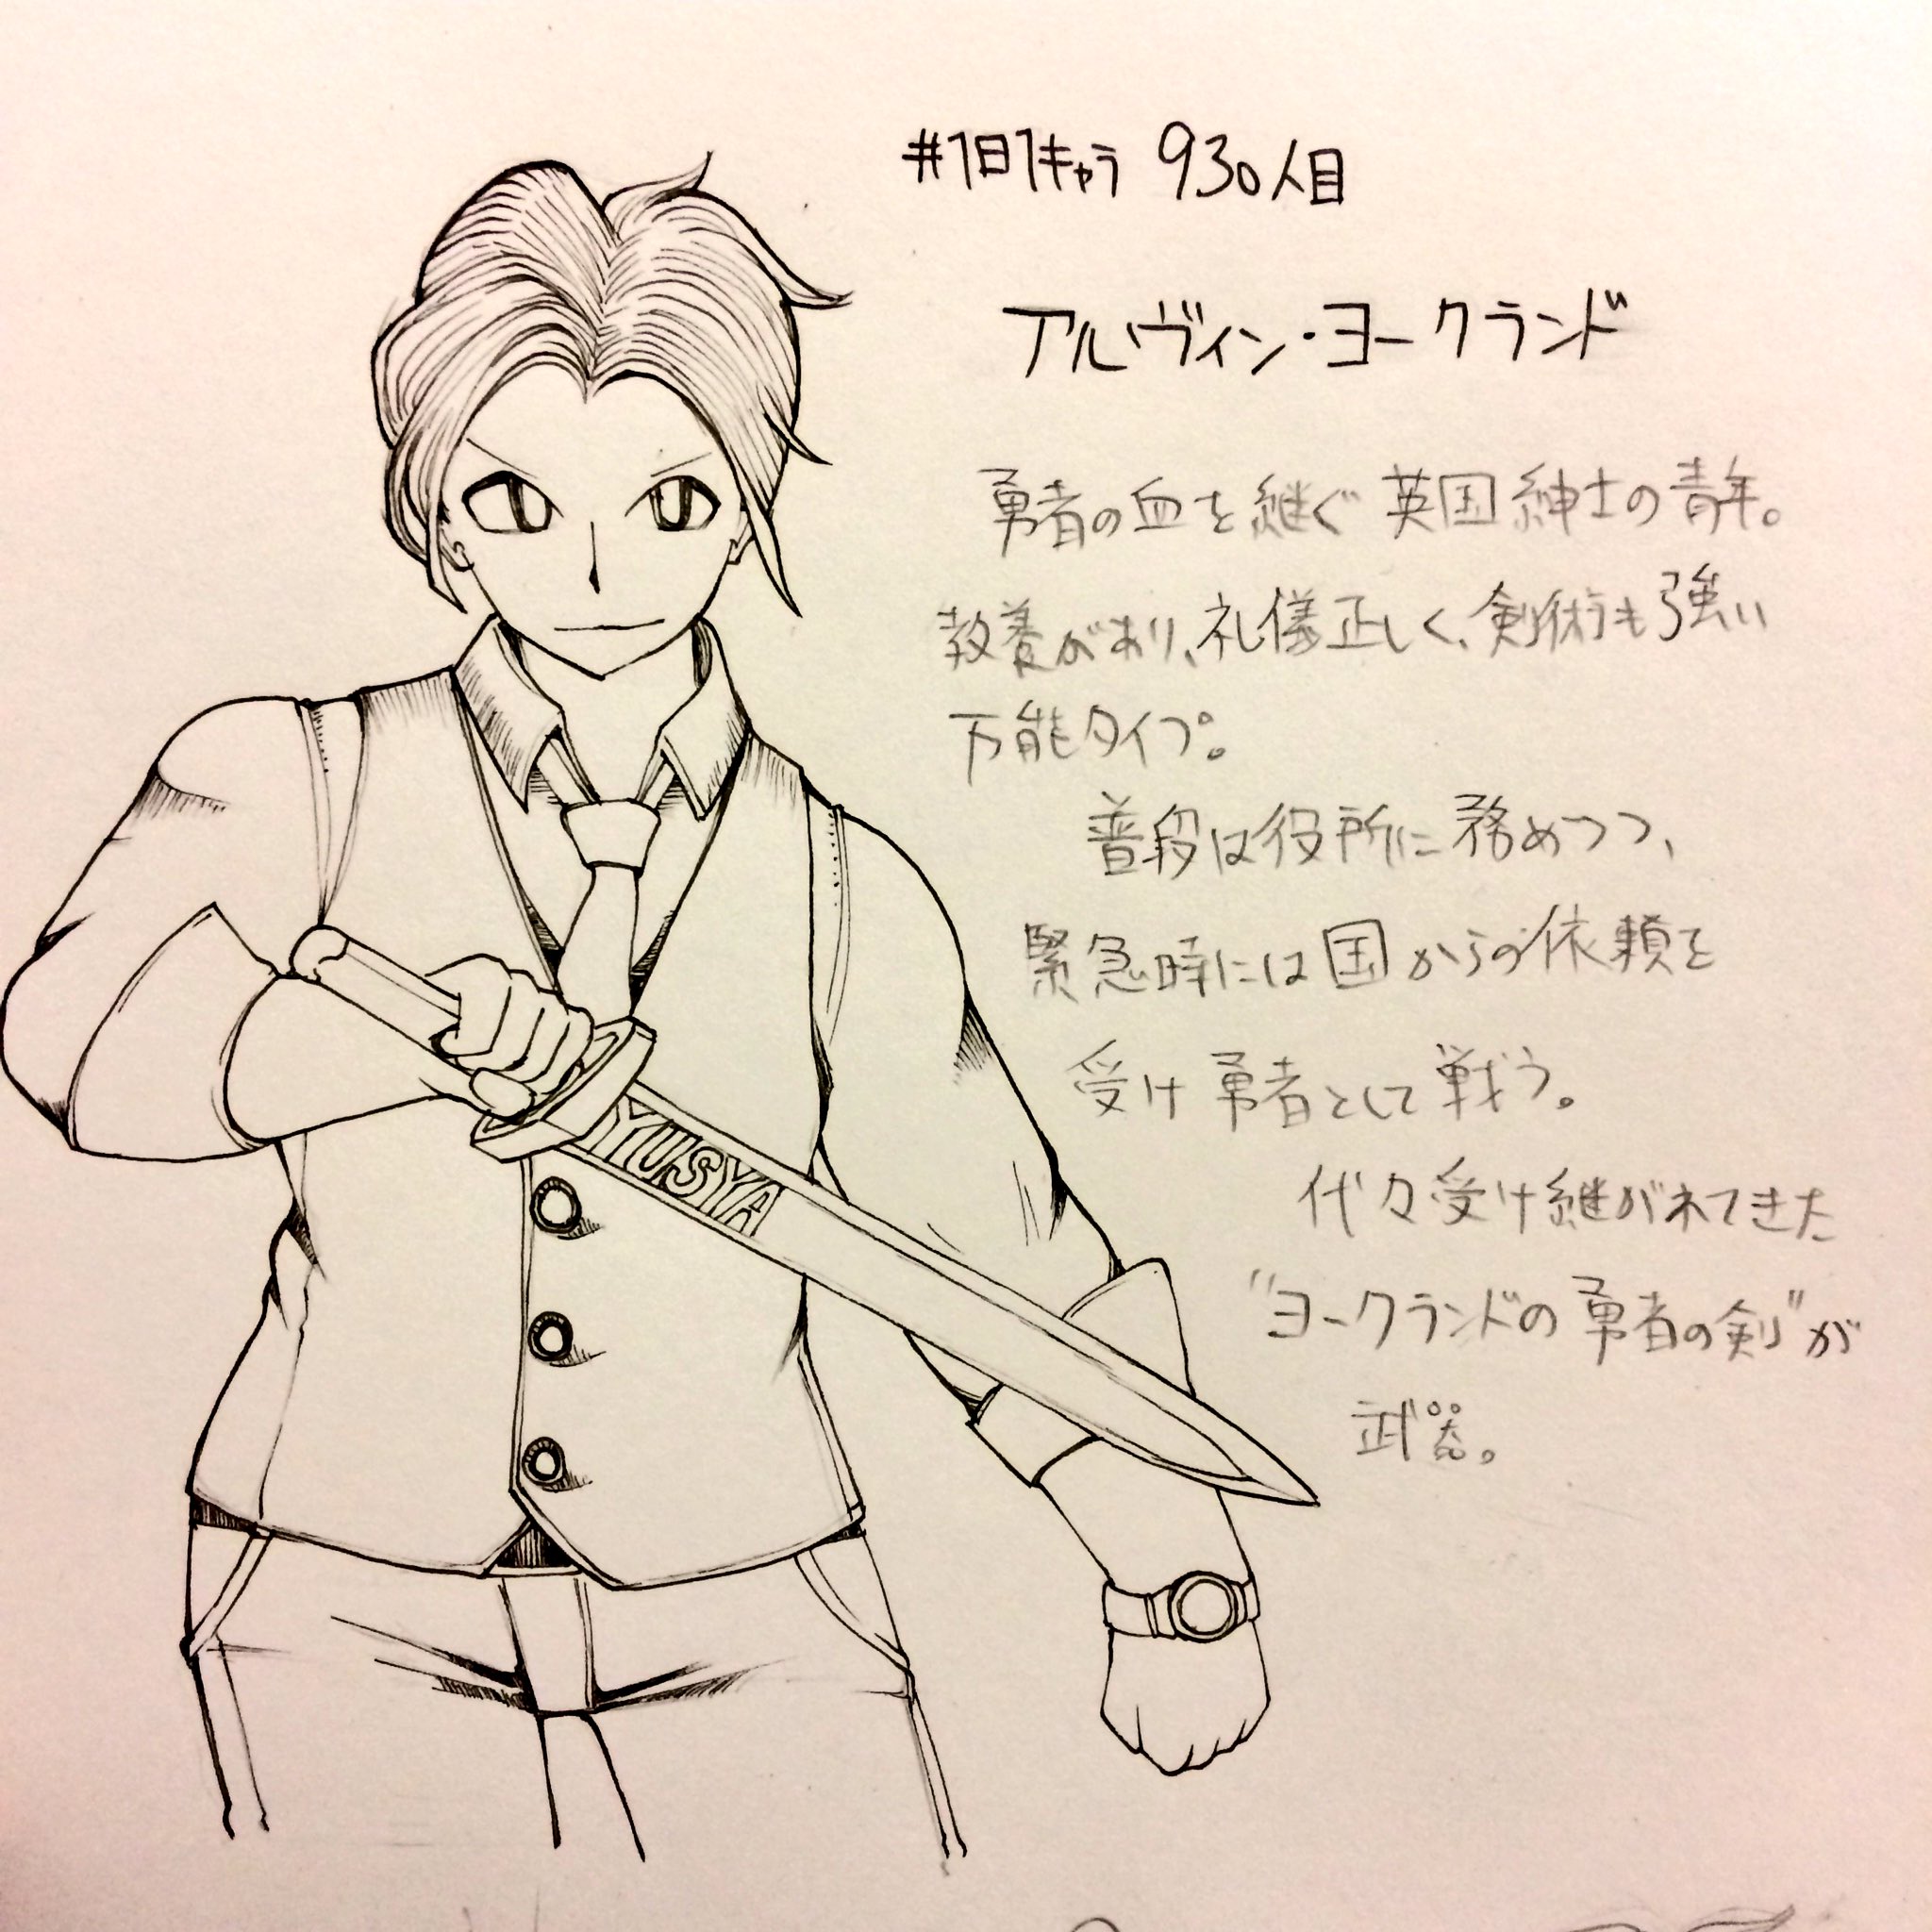 #1日1キャラ 930人目
アルヴィン・ヨークランド
勇者の血を継ぐ英国紳士の青年。
教養があり、礼儀正しく、剣術も強い
万能タイプ。
普段は役所に務めつつ、
緊急時には国からの依頼を
受け勇者として戦う。
代々受け継がれてきた
"ヨークランドの勇者の剣"が
武器。
YUSYA